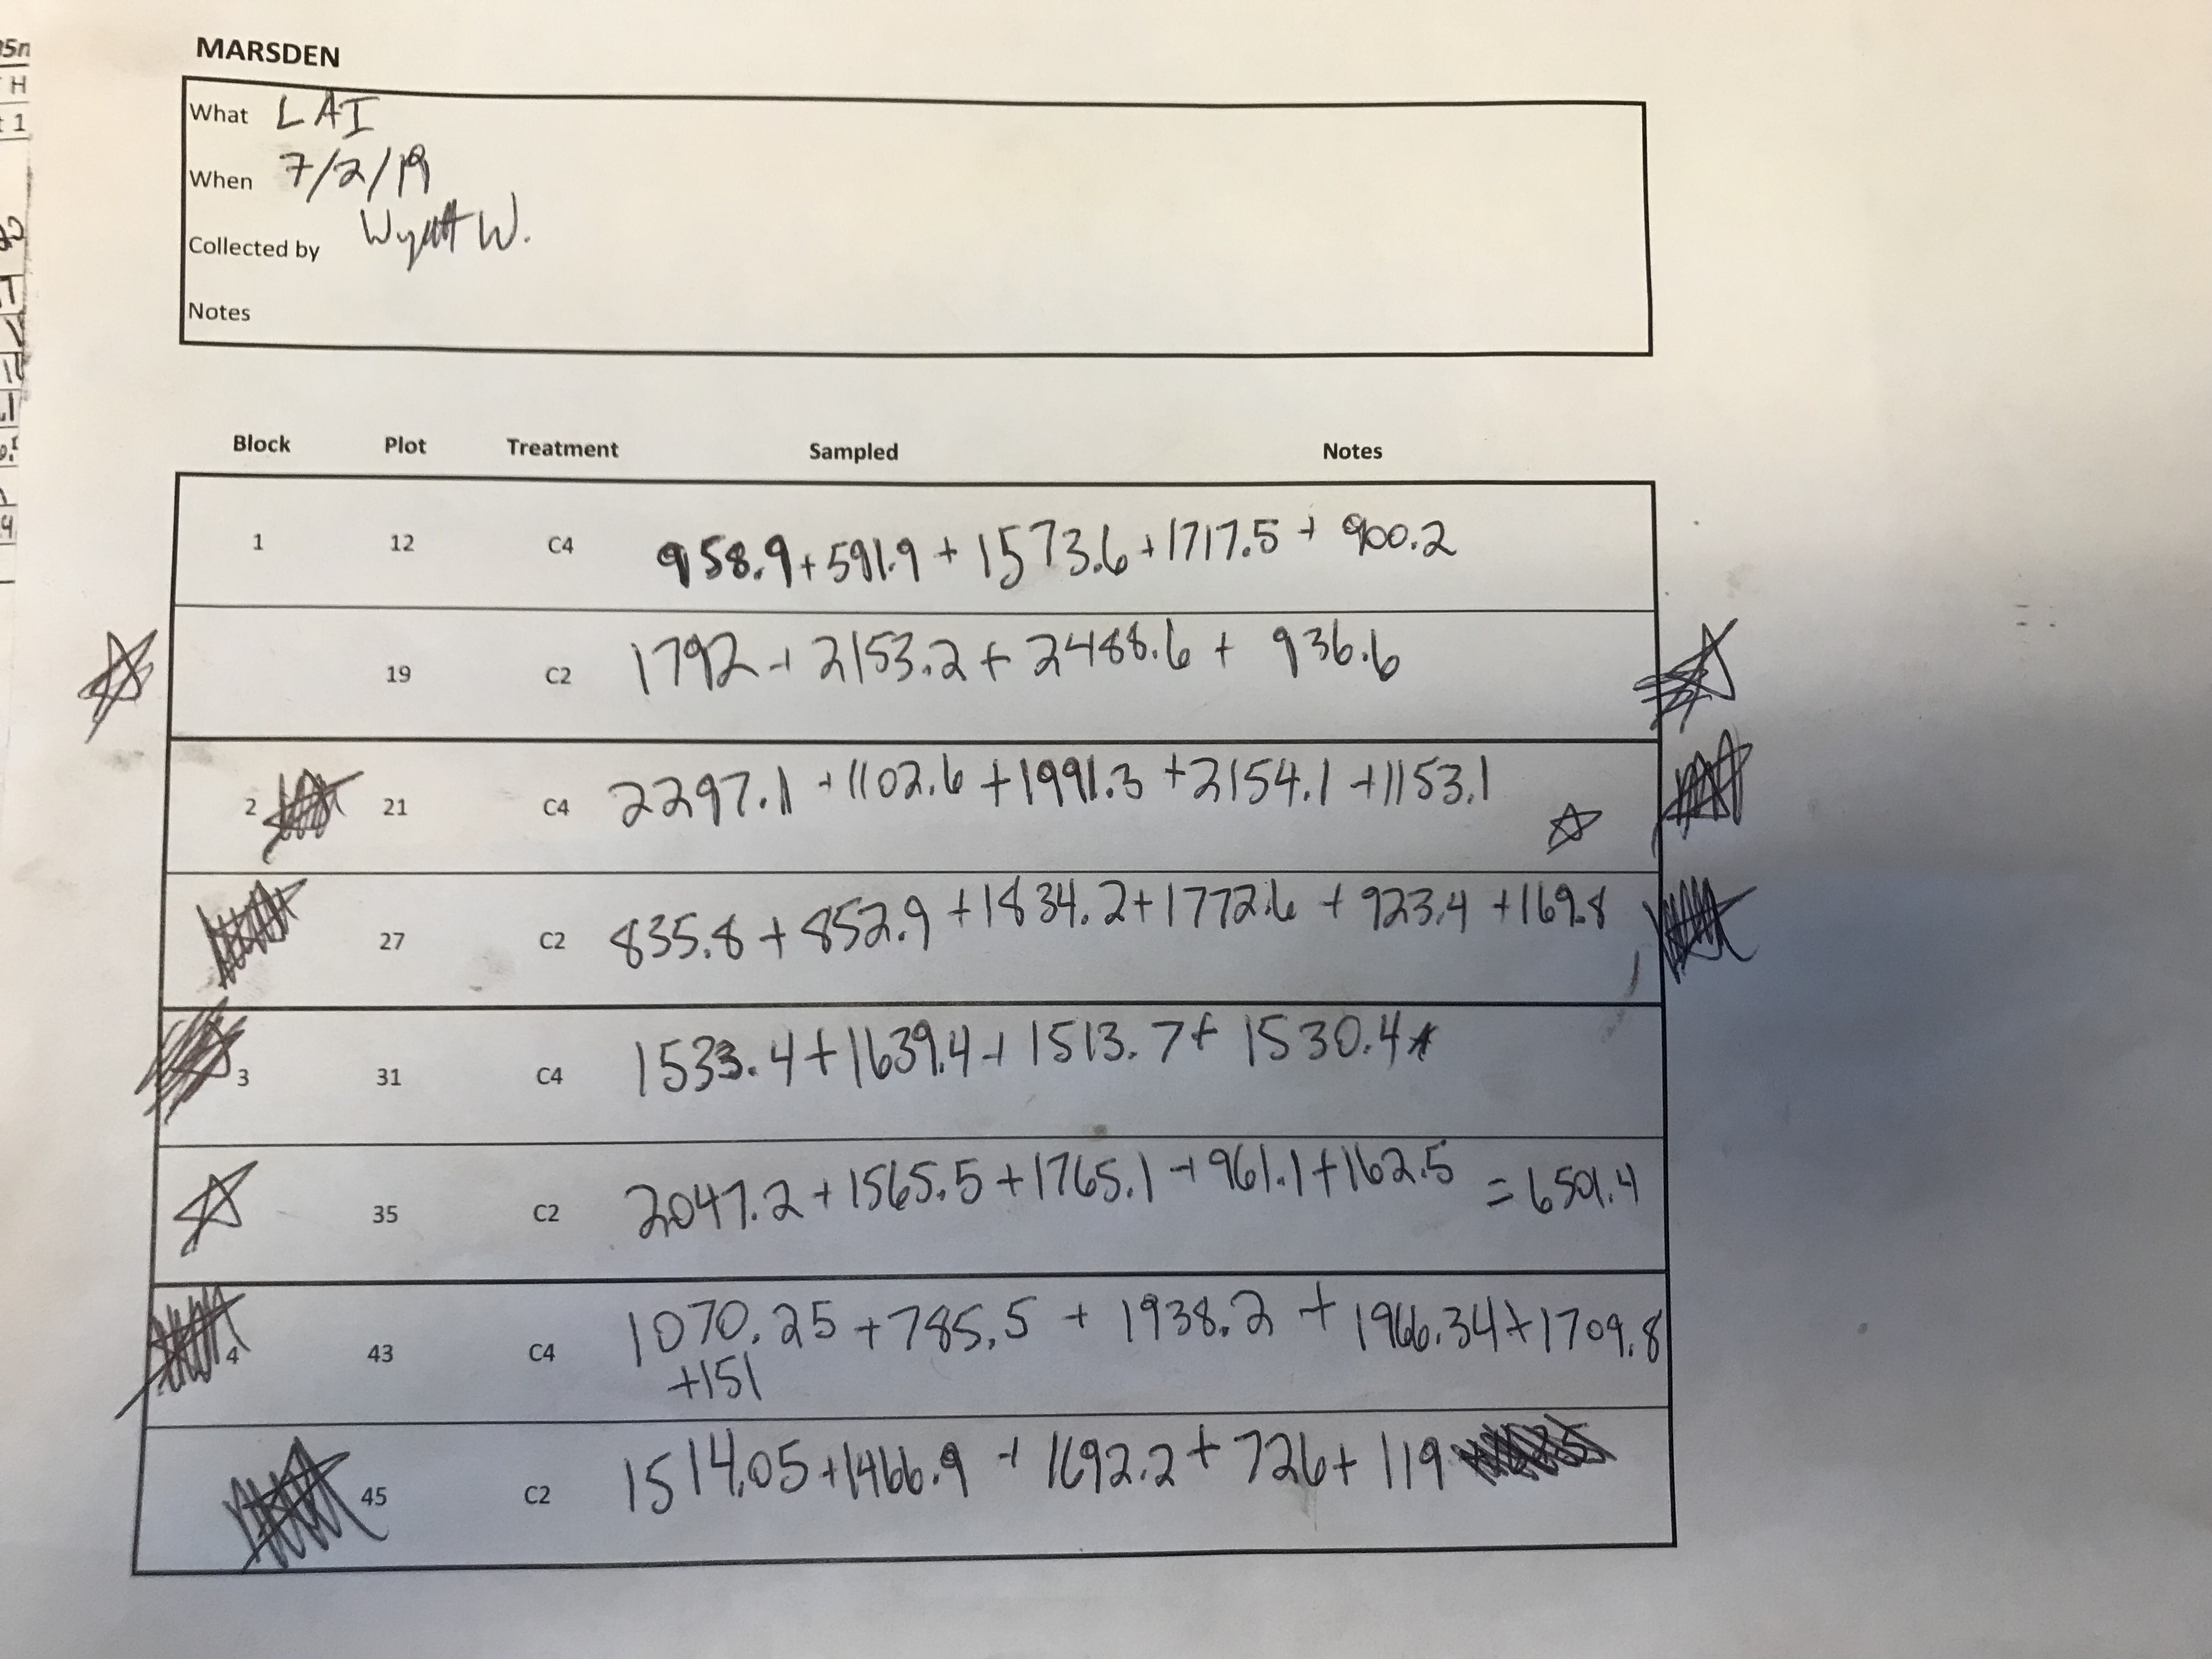 MARSDEN
What LAI
When 7/2/19
Collected by Wyatt W.
Notes
Block Plot Treatment Sampled Notes
1 12 C4 958.9+591.9+1573.6+1717.5+900.2
19 C2 1792+2153.2+2488.6+936.6
2 21 C4 2297.1+1102.6+1991.3+2154.1+1153.1
27 C2 835.8+852.9+1834.2+1772.6+923.4+169.8
3 31 C4 1533.4+1639.4+1513.7+1530.4
35 C2 2047.2+1565.5+1765.1+961.1+162.5=6501.4
4 43 C4 1070.25+785.5+1938.2+1966.34+1709.8
+151
45 C2 1514.05+1466.9+1692.2+726+119
5n
H
1